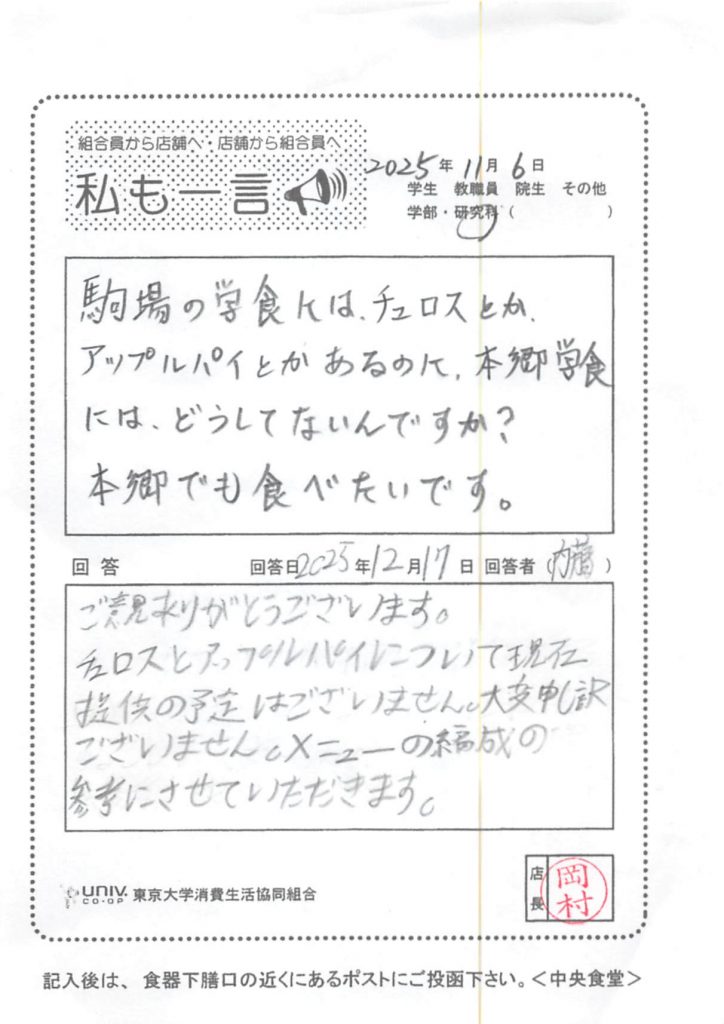 組合員から店舗へ・店舗から組合員へ
私も一言
2025年11月6日
学生 教職員 院生 その他
学部・研究科( )
駒場の学食には、チュロスとか、
アップルパイとかあるのに、本郷学食
には、どうしてないんですか?
本郷でも食べたいです。
回答 回答日2025年12月17日 回答者(内藤)
ご意見ありがとうございます。
チュロスとアップルパイについて現在
提供の予定はございません。大変申し訳
ございません。メニューの編成の
参考にさせていただきます。
UNIV. CO・OP 東京大学消費生活協同組合
店長 岡村
記入後は、食器下膳口の近くにあるポストにご投函下さい。<中央食堂>